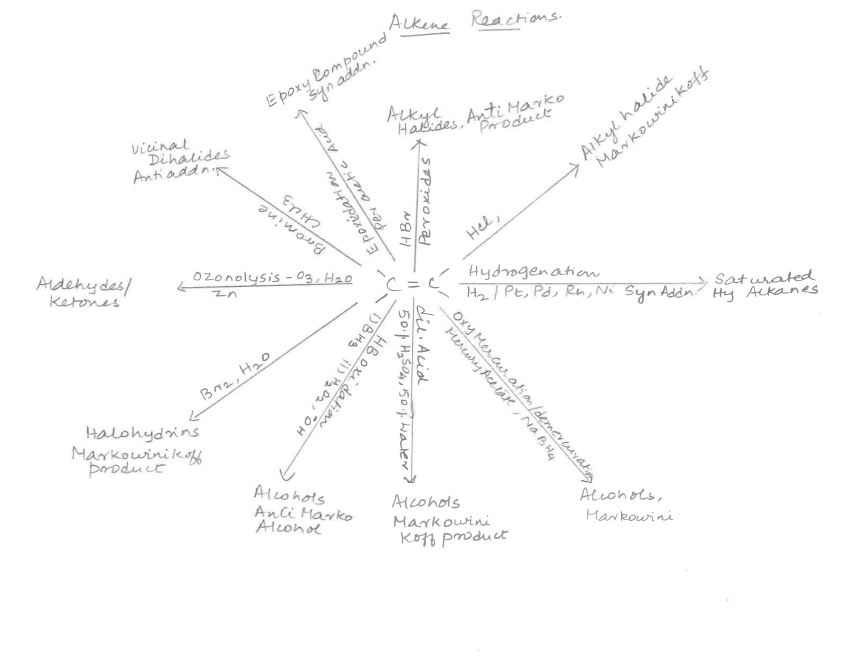 Alkene Reactions.
Epoxy Compound
Syn addn.
Epoxidation
Per acetic Acid
Alkyl
Halides, Anti Marko
Product
HBr
Peroxides
Alkyl halide
Markowinikoff
HCl,
Vicinal
Dihalides
Anti addn.
Bromine
Aldehydes/
Ketones
Ozonolysis - O3, H2O
Zn
C = C
Hydrogenation
H2/Pt, Pd, Rn, Ni Syn Addn.
Saturated
Hy Alkanes
Br2, H2O
Halohydrins
Markowinikoff
product
HB oxidation
i) BH3 ii) H2O2, -OH
Alcohols
Anti Marko
Alcohol
dil. Acid
50% H2SO4, 50% Water
Alcohols
Markowini
Koff product
Oxy Mercuration/demercuration
Mercury Acetate, NaBH4
Alcohols,
Markowini